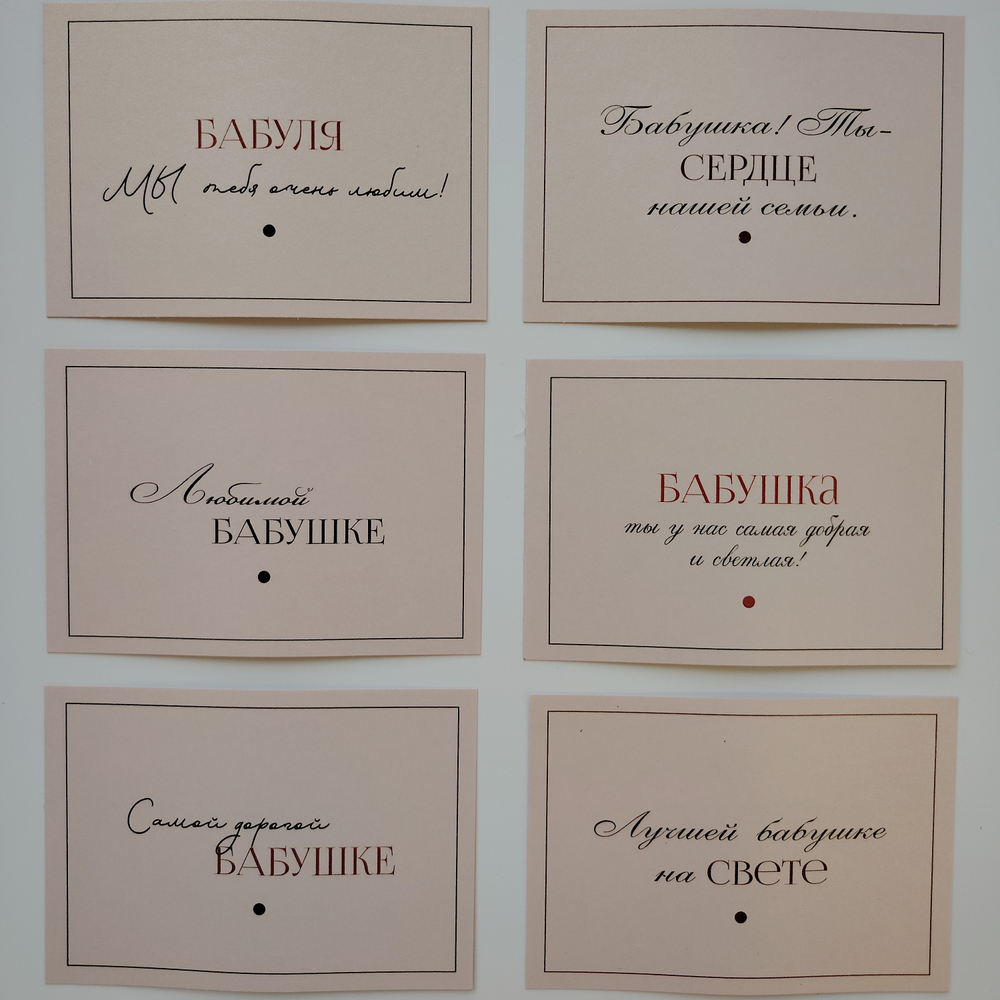 БАБУЛЯ
МЫ тебя очень любим!
Бабушка! Ты-
СЕРДЦЕ
нашей семьи.
Любимой
БАБУШКЕ
БАБУШКа
ты у нас самая добрая
и светлая!
Самой дорогой
БАБУШКЕ
Лучшей бабушке
на СВЕТЕ